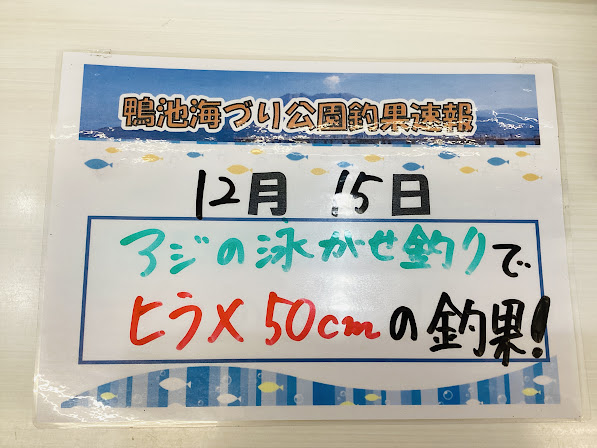 鴨池海づり公園釣果速報
12月 15日
アジの泳がせ釣りで
ヒラメ50cmの釣果!